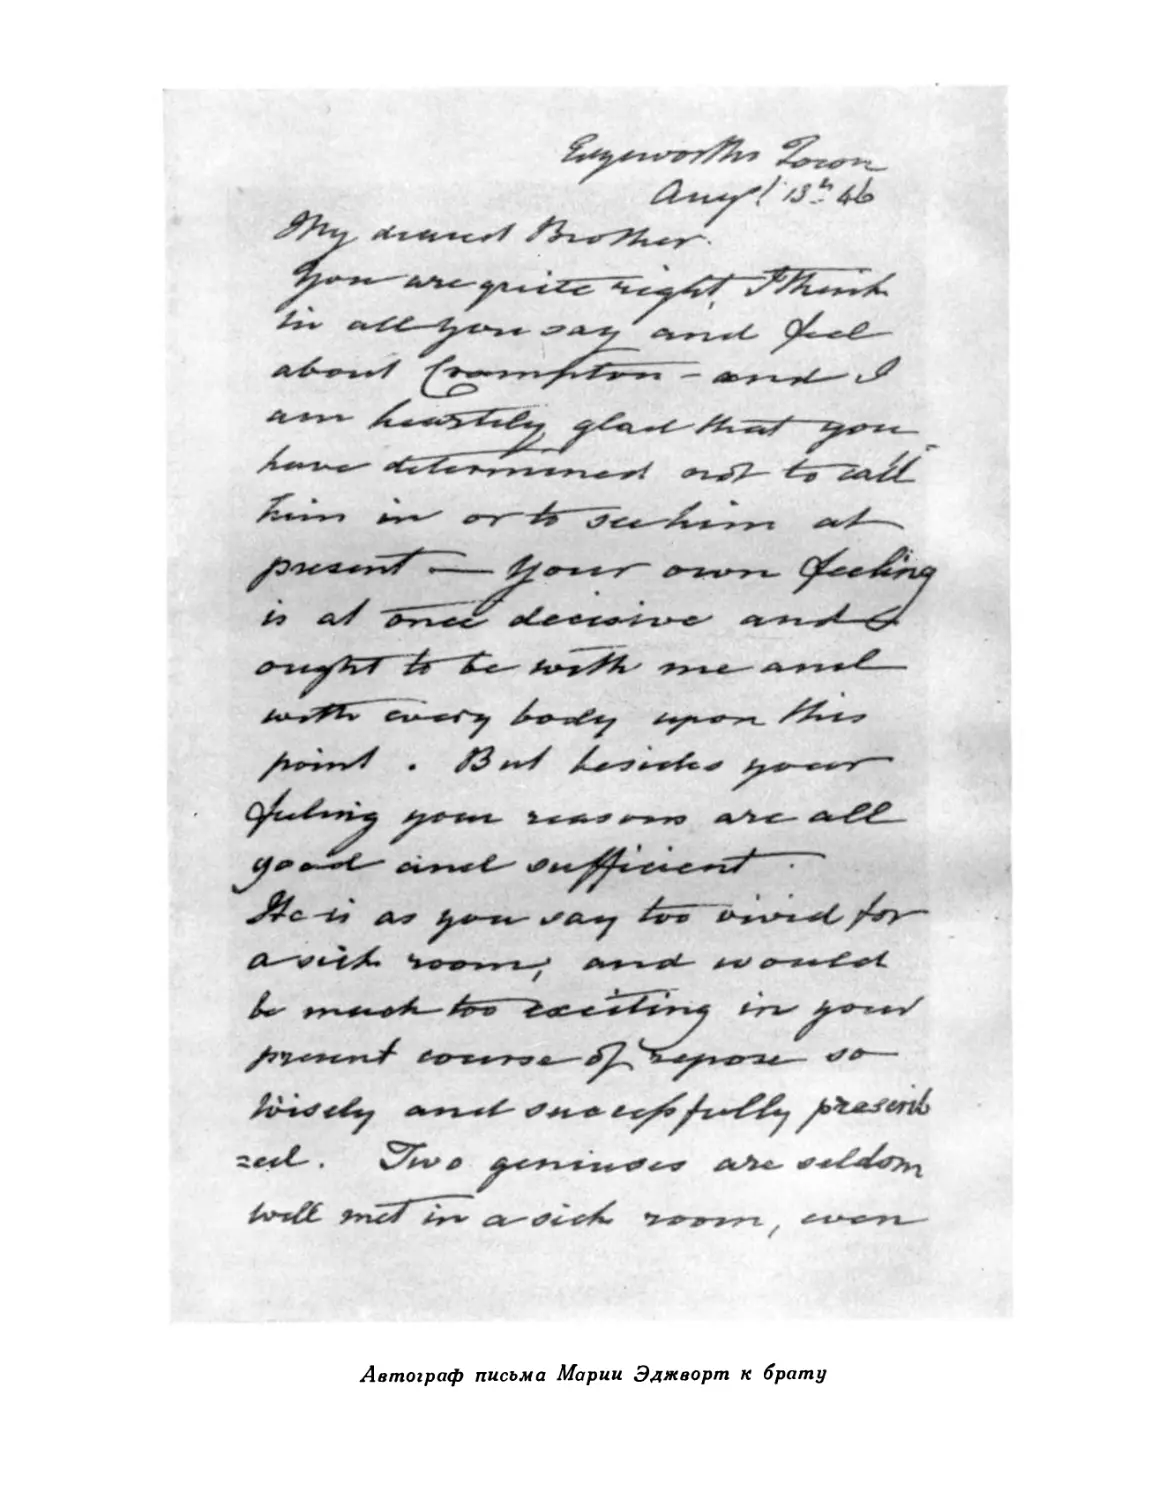 Edgeworths Town
Augt 13th 46
My dearest Brother.
You are quite right, I think
in all you say and feel
about Crampton - and I
am heartily glad that you
have determined not to call
him in or to see him at
present — Your own feeling
is at once decisive and
ought to be with me and
with every body upon this
point. But besides your
feeling your reasons are all
good and sufficient.
He is as you say too vivid for
a sick room, and would
be much too exciting in your
present course of repose so
wisely and successfully prescrib
=ed. Two geniuses are seldom
well met in a sick room, even
Автограф письма Марии Эджворт к брату